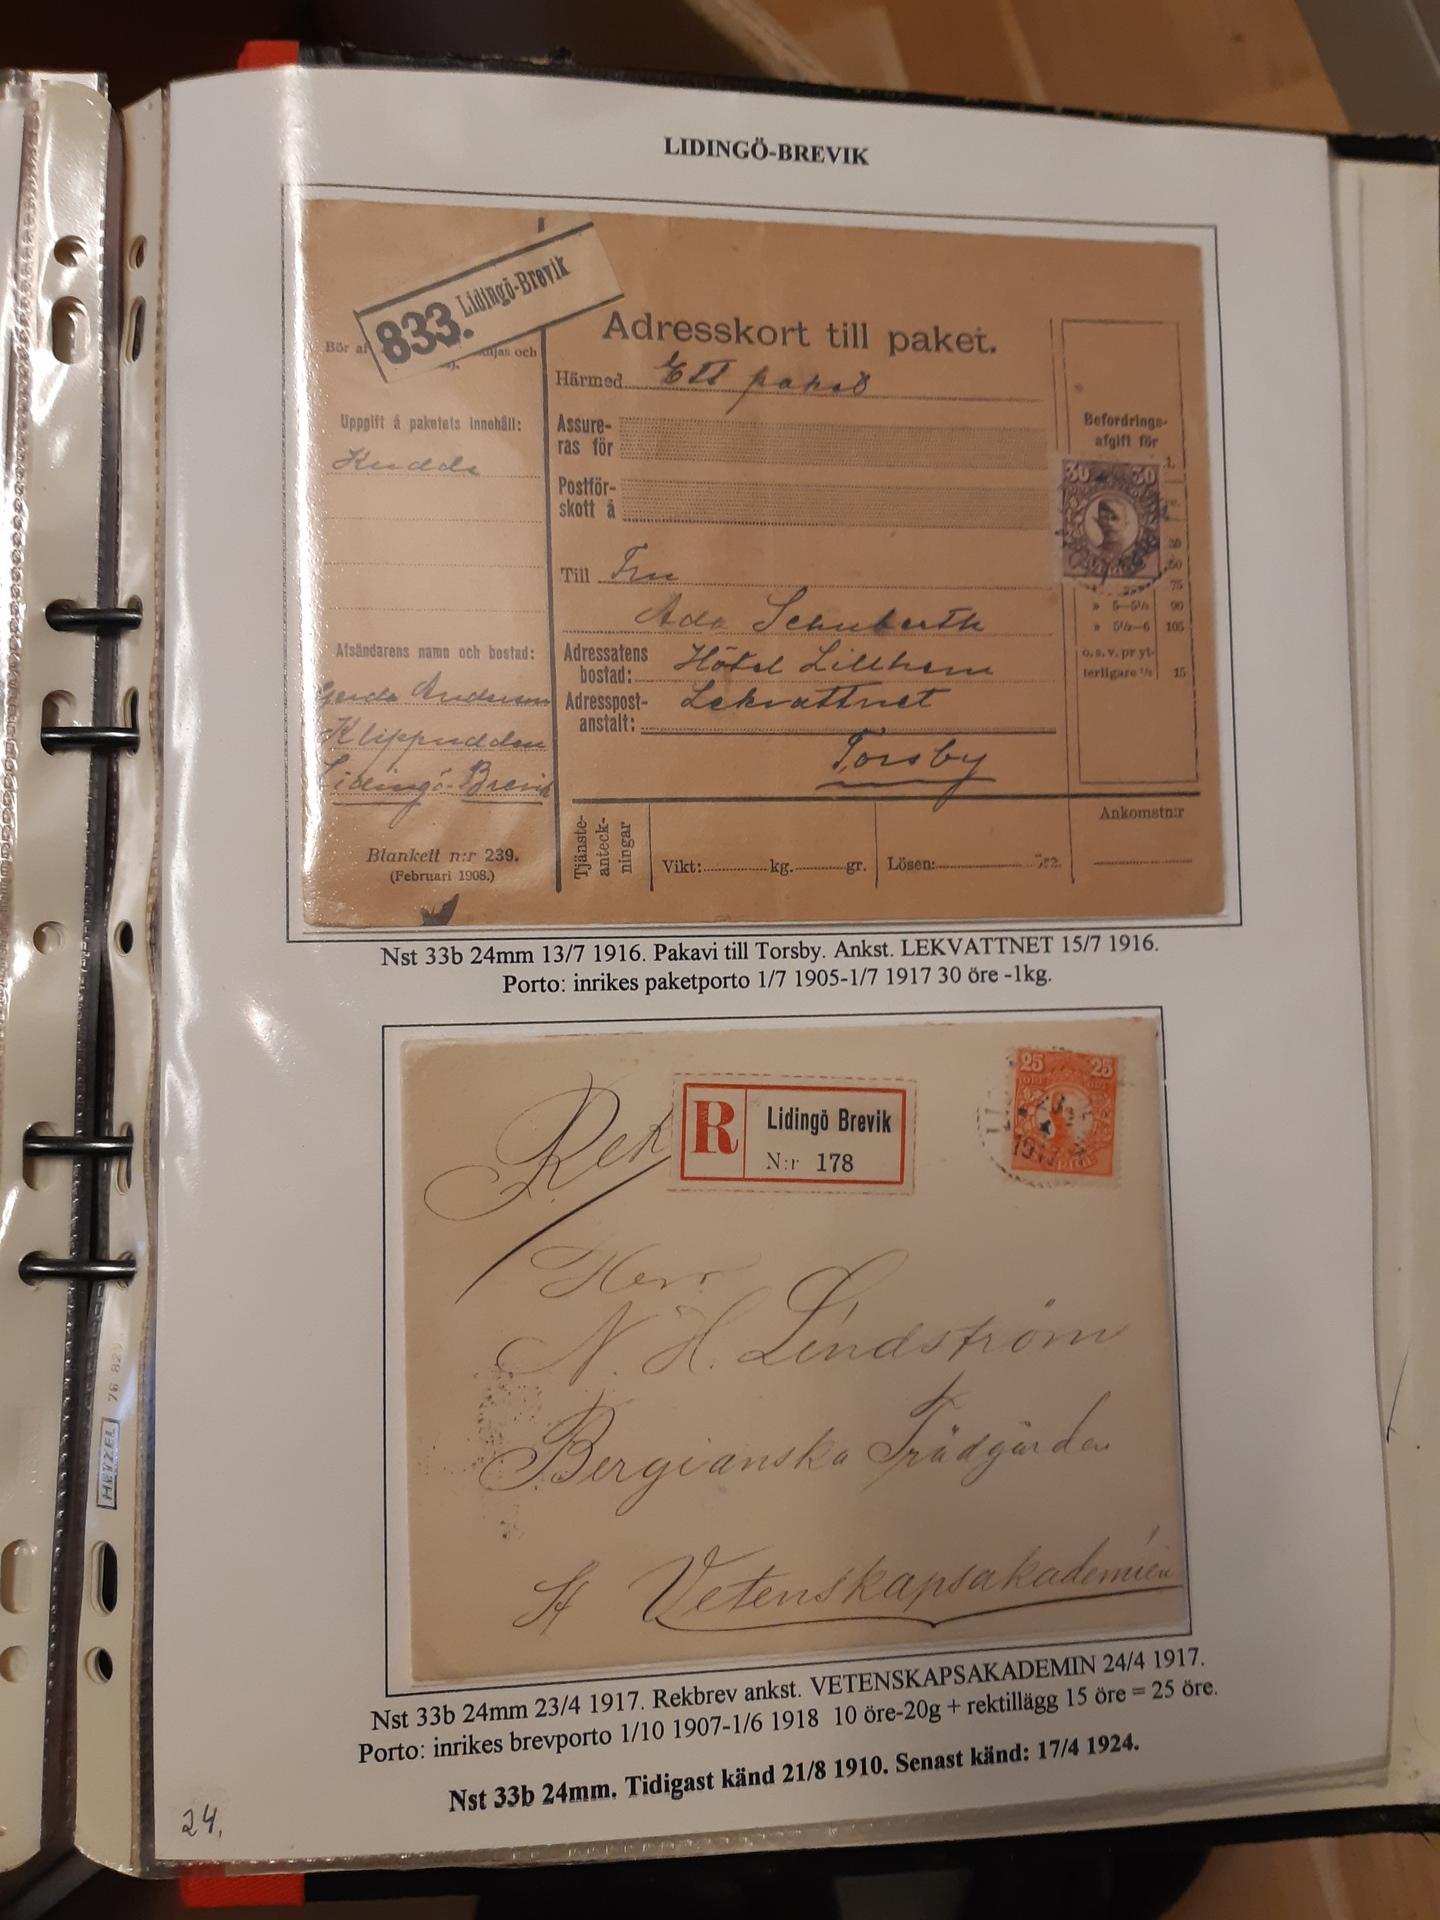 LIDINGÖ-BREVIK
833. Lidingö-Brevik
Adresskort till paket.
Bör af
och
Härmed Ett
Uppgift å paketets innehåll:
Assure-
ras för
Postför-
skott å
Befordrings-
afgift för
30 30
50
75
» 5—5½ 90
» 5½—6 105
o. s. v. pr yt-
terligare ½ 15
Till Fru
Ada Schuberth
Afsändarens namn och bostad:
Adressatens
bostad: Hôtel Lillhem
Gerda Anderson
Adresspost-
anstalt: Lekvattnet
Klippudden
Lidingö-Brevik
Torsby
Blankett n:r 239.
(Februari 1908.)
Tjänste-
anteck-
ningar
Vikt: kg. gr.
Lösen:
Ankomstn:r
Nst 33b 24mm 13/7 1916. Pakavi till Torsby. Ankst. LEKVATTNET 15/7 1916.
Porto: inrikes paketporto 1/7 1905-1/7 1917 30 öre -1kg.
Rek
R Lidingö Brevik
N:r 178
25 25
1917
Herr
N. H. Lindström
Bergianska Trädgården
St Vetenskapsakademien
Nst 33b 24mm 23/4 1917. Rekbrev ankst. VETENSKAPSAKADEMIN 24/4 1917.
Porto: inrikes brevporto 1/10 1907-1/6 1918 10 öre-20g + rektillägg 15 öre = 25 öre.
Nst 33b 24mm. Tidigast känd 21/8 1910. Senast känd: 17/4 1924.
24.
HETZEL